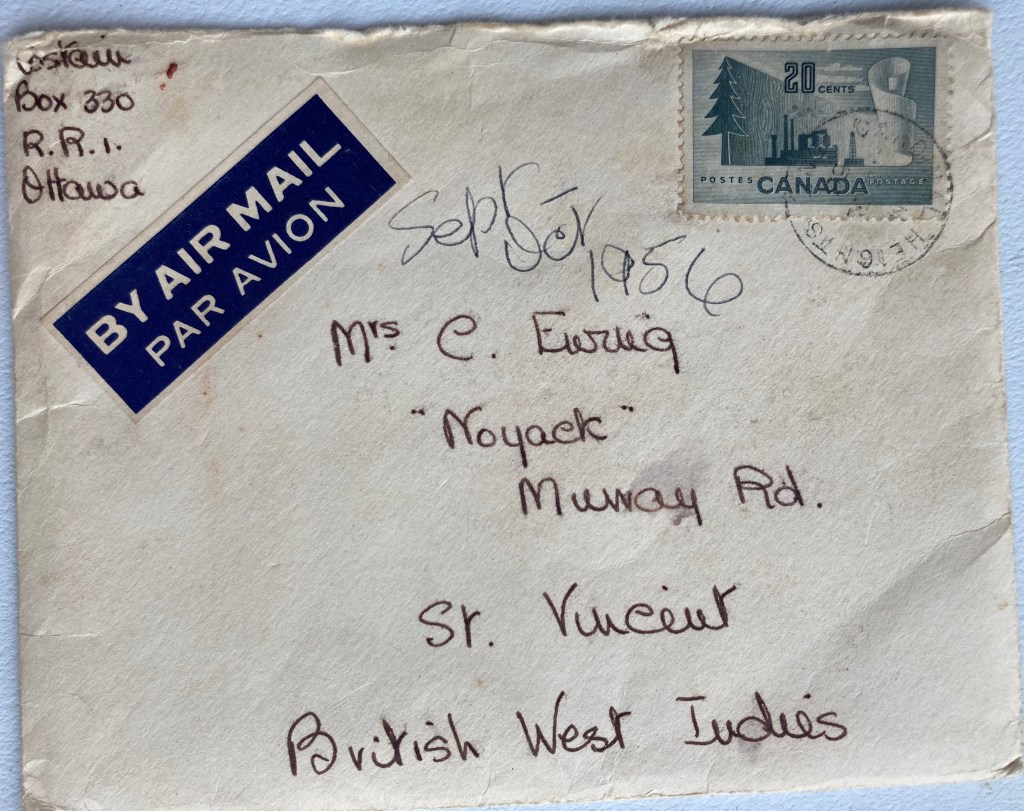 Box 330
R.R.1.
Ottawa
BY AIR MAIL
PAR AVION
20 CENTS
POSTES CANADA POSTAGE
HEIGHTS
Sept
1956
Mrs C. Ewing
"Noyack"
Murray Rd.
St. Vincent
British West Indies